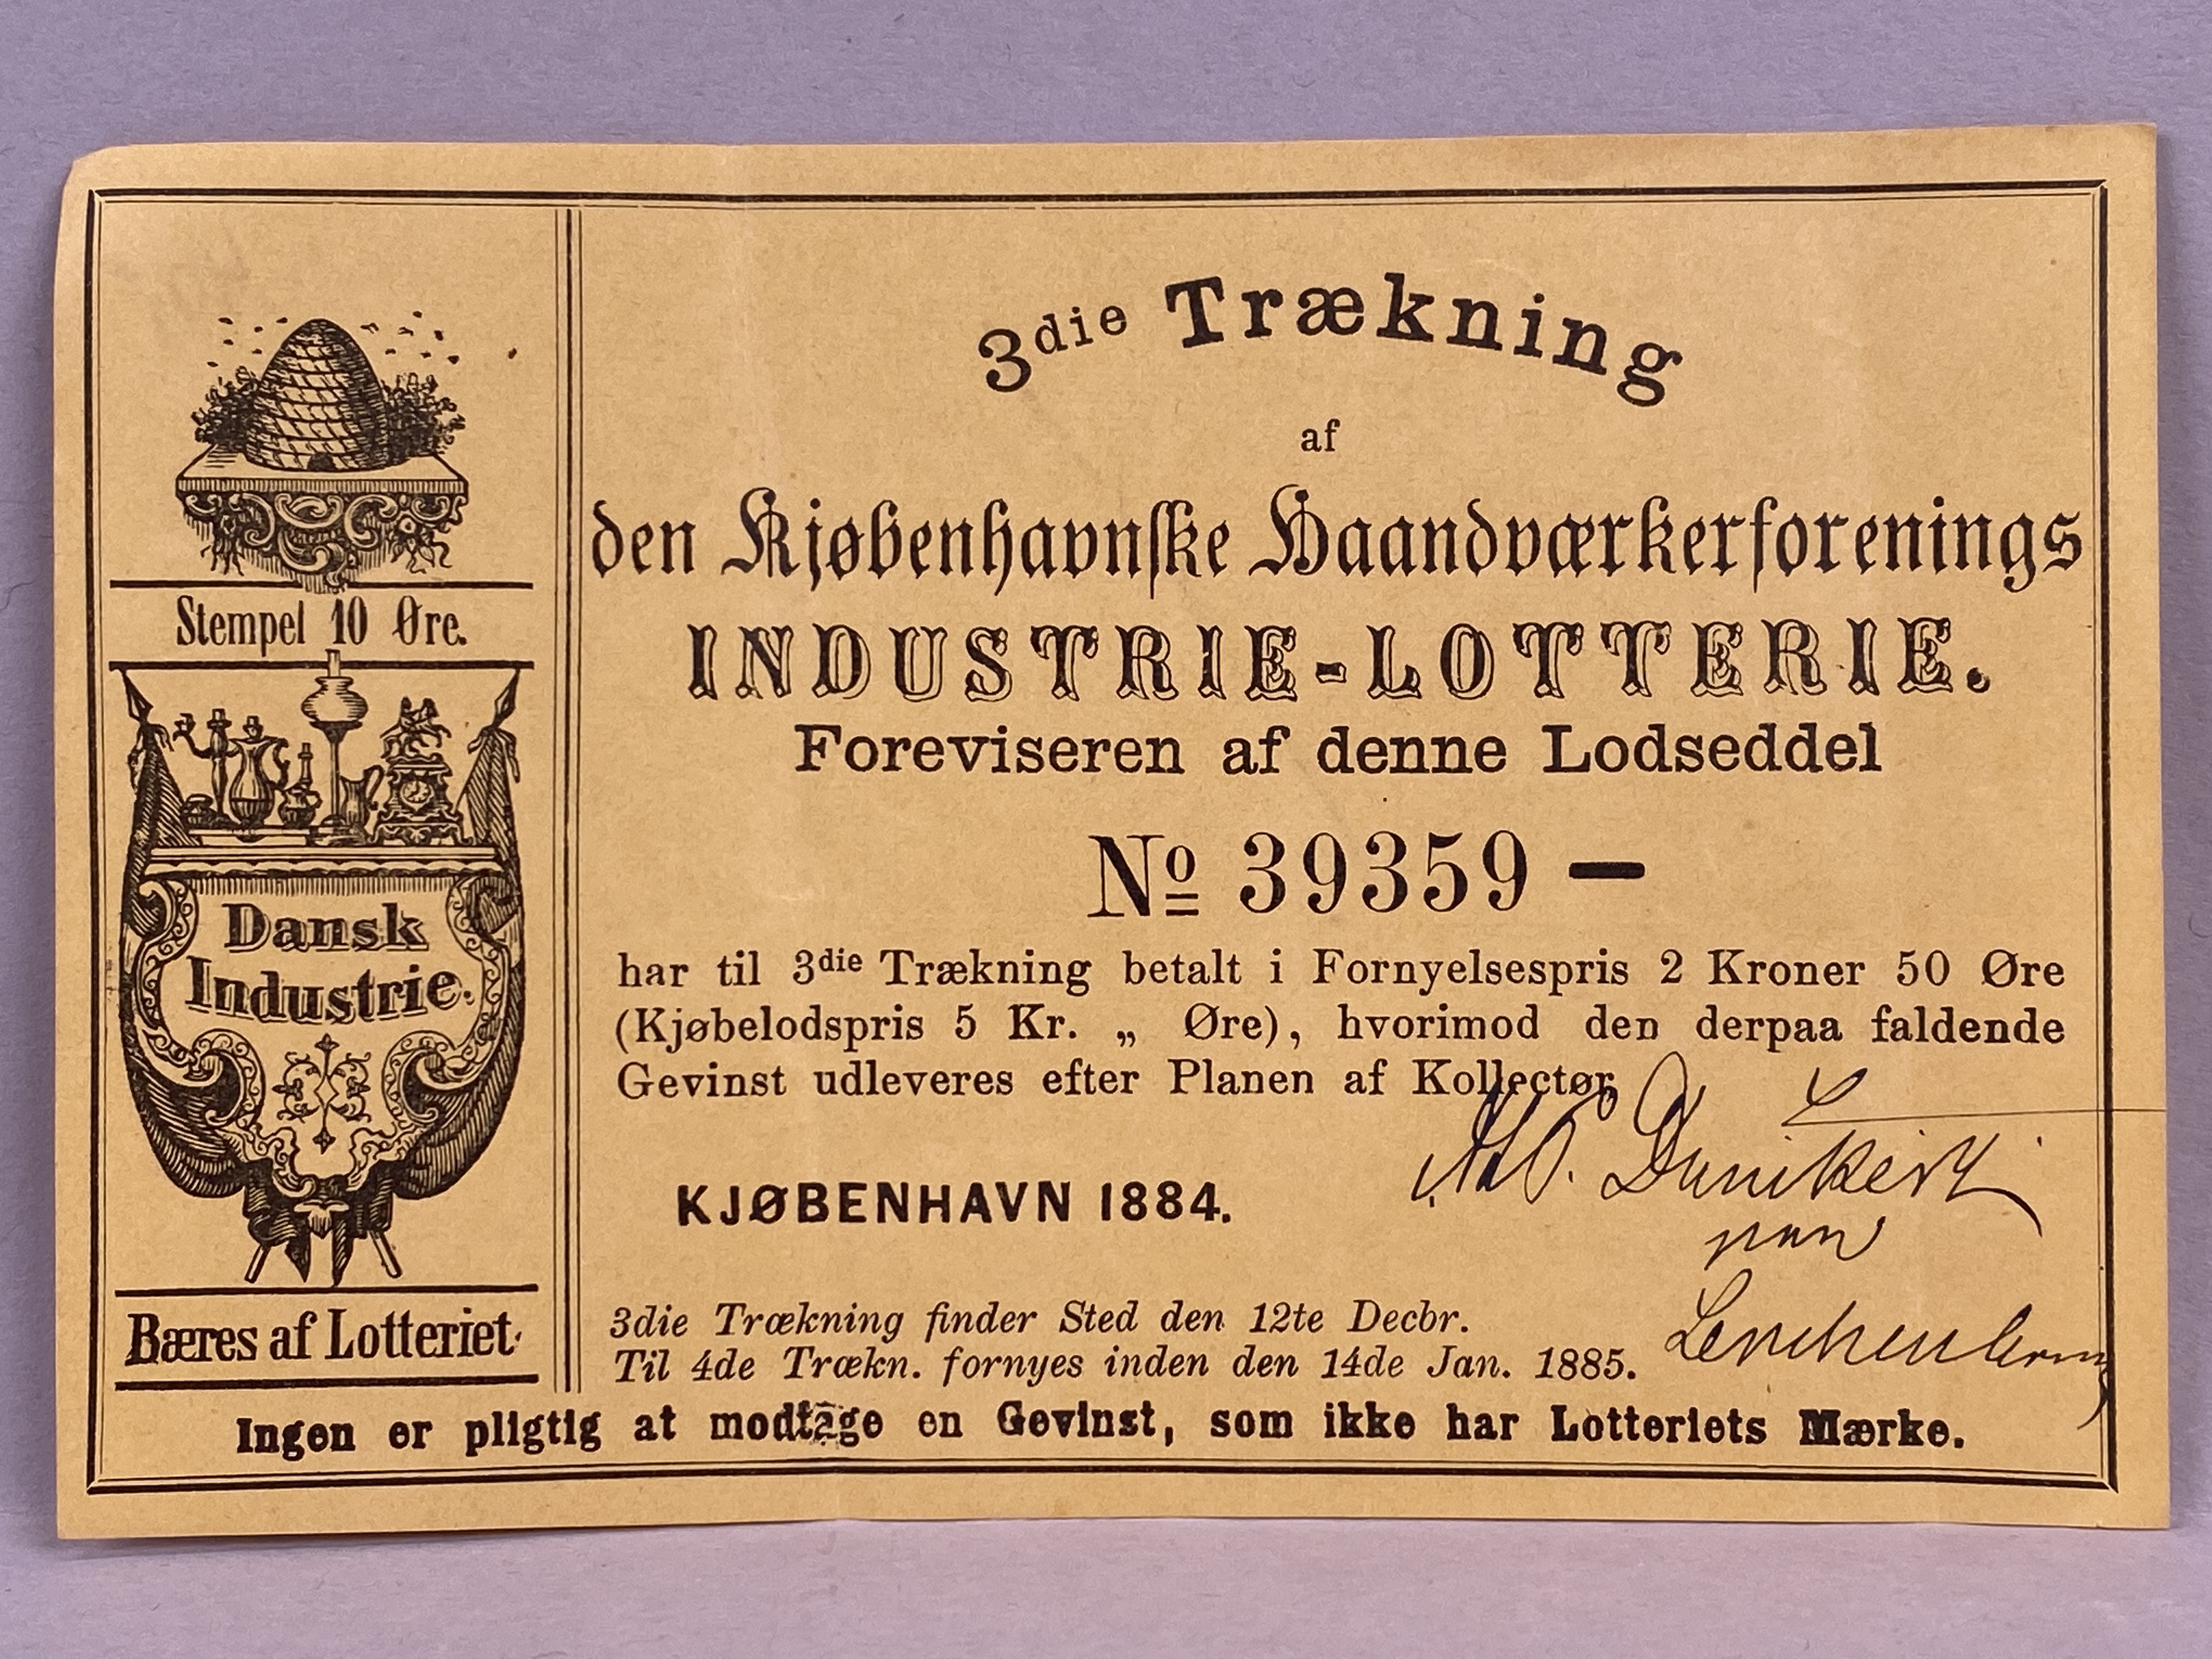 Stempel 10 Øre.
Dansk
Industrie.
Bæres af Lotteriet.
3die Trækning
af
den Kjøbenhavnske Haandværkerforenings
INDUSTRIE-LOTTERIE.
Foreviseren af denne Lodseddel
No 39359 —
har til 3die Trækning betalt i Fornyelsespris 2 Kroner 50 Øre
(Kjøbelodspris 5 Kr. „ Øre), hvorimod den derpaa faldende
Gevinst udleveres efter Planen af Kollectør
KJØBENHAVN 1884.
paa
3die Trækning finder Sted den 12te Decbr.
Til 4de Trækn. fornyes inden den 14de Jan. 1885.
Ingen er pligtig at modtage en Gevinst, som ikke har Lotteriets Mærke.